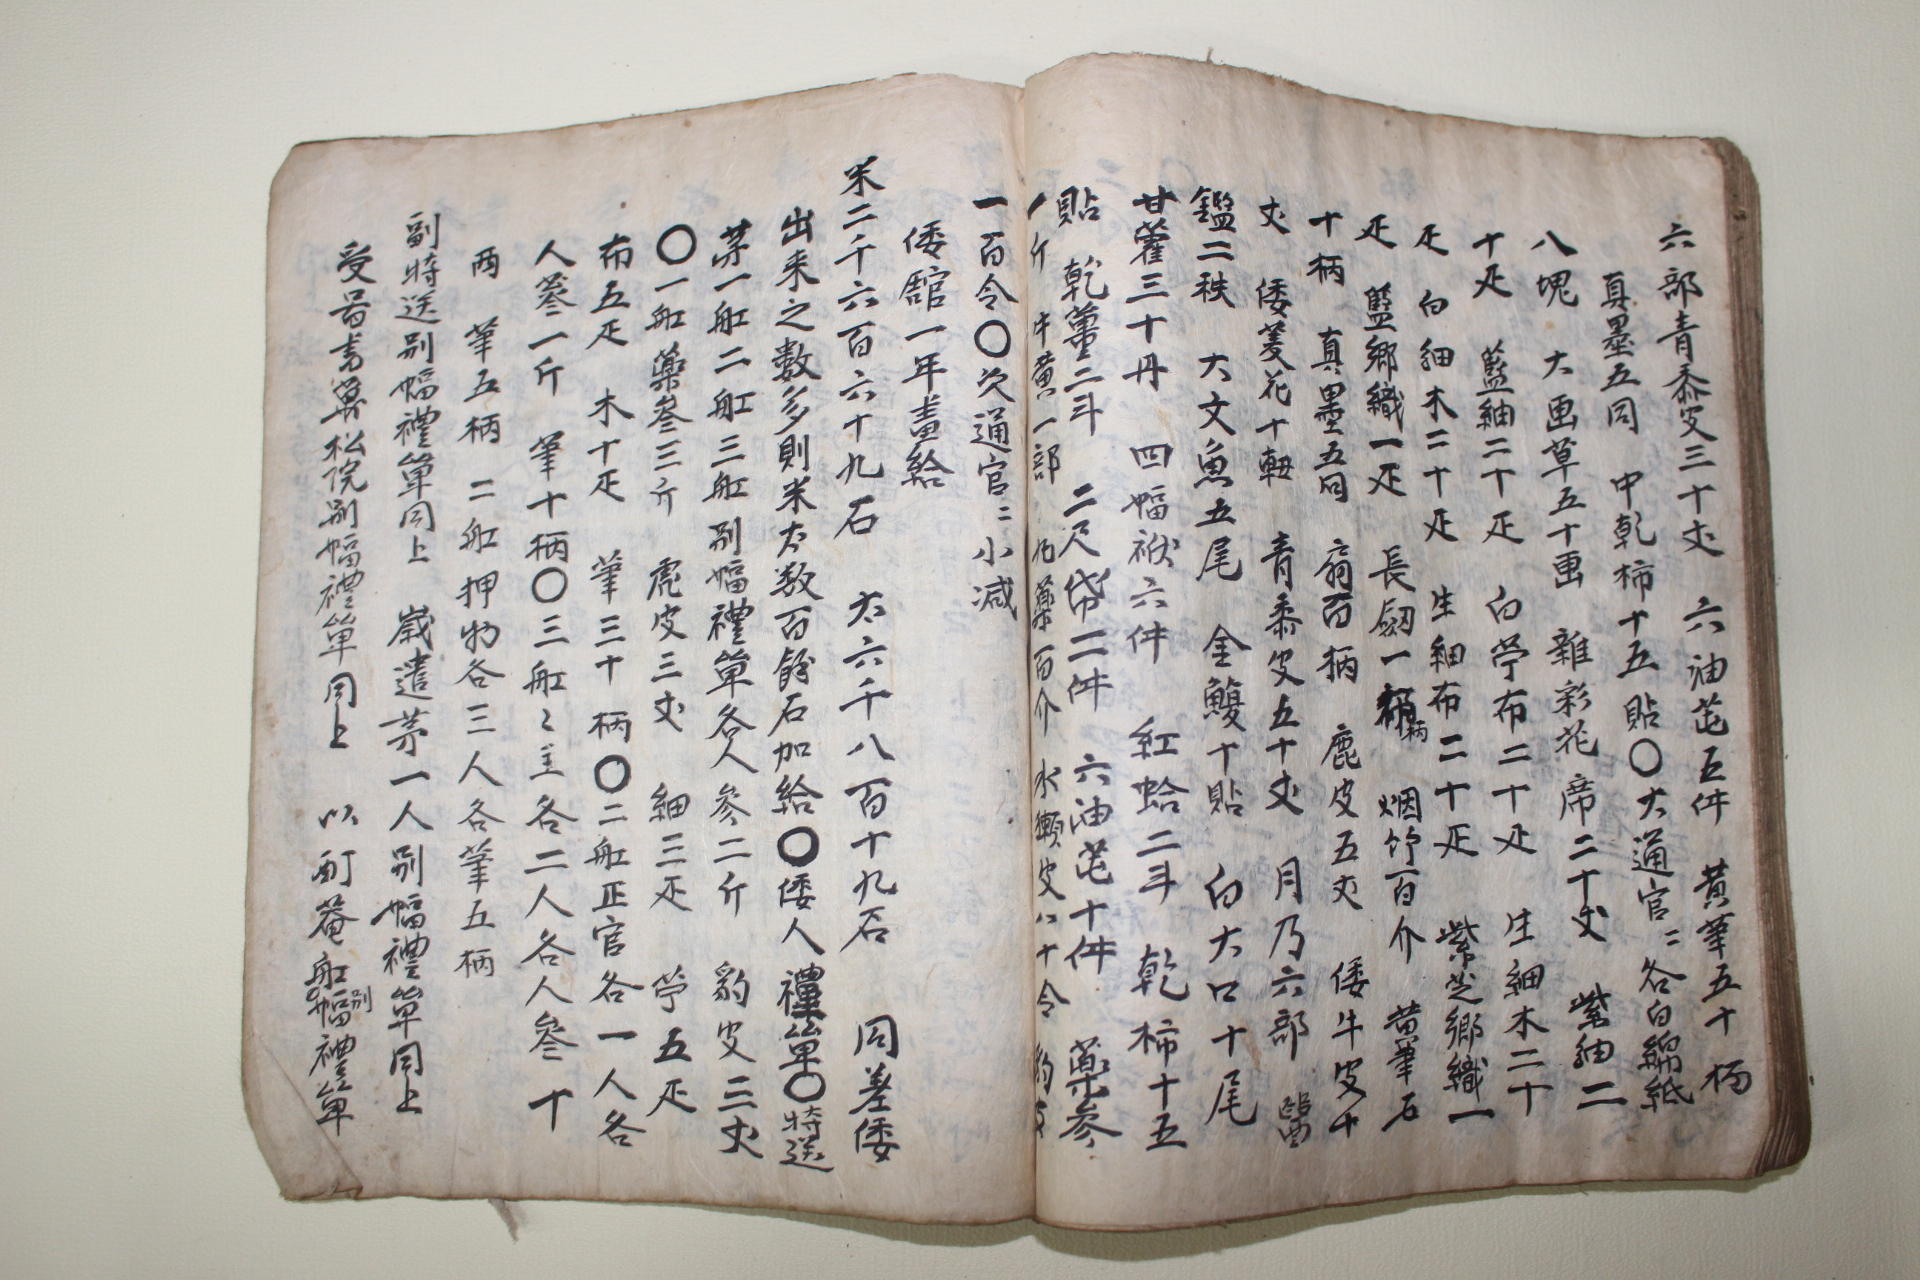 六部青黍皮三十丈 六油芚五件 黃筆五十柄
真墨五同 中乾柿十五貼〇大通官〻各白綿紙
八塊 大画草五十画 雜彩花席二十丈 紫紬二
十疋 藍紬二十疋 白苧布二十疋 生細木二十
疋 白細木二十疋 生細布二十疋 紫芝鄕織一
疋 藍鄕織一疋 長劒一柄 烟竹百介 黃筆百
十柄 真墨五同 扇百柄 鹿皮五丈 倭牛皮十
丈 倭菱花十軸 青黍皮五十丈 月乃六部 醫
鑑二秩 大文魚五尾 金鰒十貼 白大口十尾
甘藿三十丹 四幅袱六件 紅蛤二斗 乾柿十五
貼 乾薑二斗 二尺帒二件 六油芚十件 藥參
一斤 牛黃一部 丸藥百介 水獺皮八十令 豹皮
一百令〇次通官〻小减
倭舘一年畫給
米二千六百六十九石 太六千八百十九石 同差倭
出来之數多則米太数百餘石加給〇倭人禮單〇特送
茅一舡二舡三舡別幅禮單各人參二斤 豹皮三丈
〇一舡藥參三斤 虎皮三丈 細三疋 苧五疋
布五疋 木十疋 筆三十柄〇二舡正官各一人各
人蔘一斤 筆十柄〇三舡〻主各二人各人參十
両 筆五柄 二舡押物各三人各筆五柄
副特送別幅禮單同上 歲遣茅一人別幅禮單同上
受啚書萬松院別幅禮單同上 以酊菴舡別幅禮單